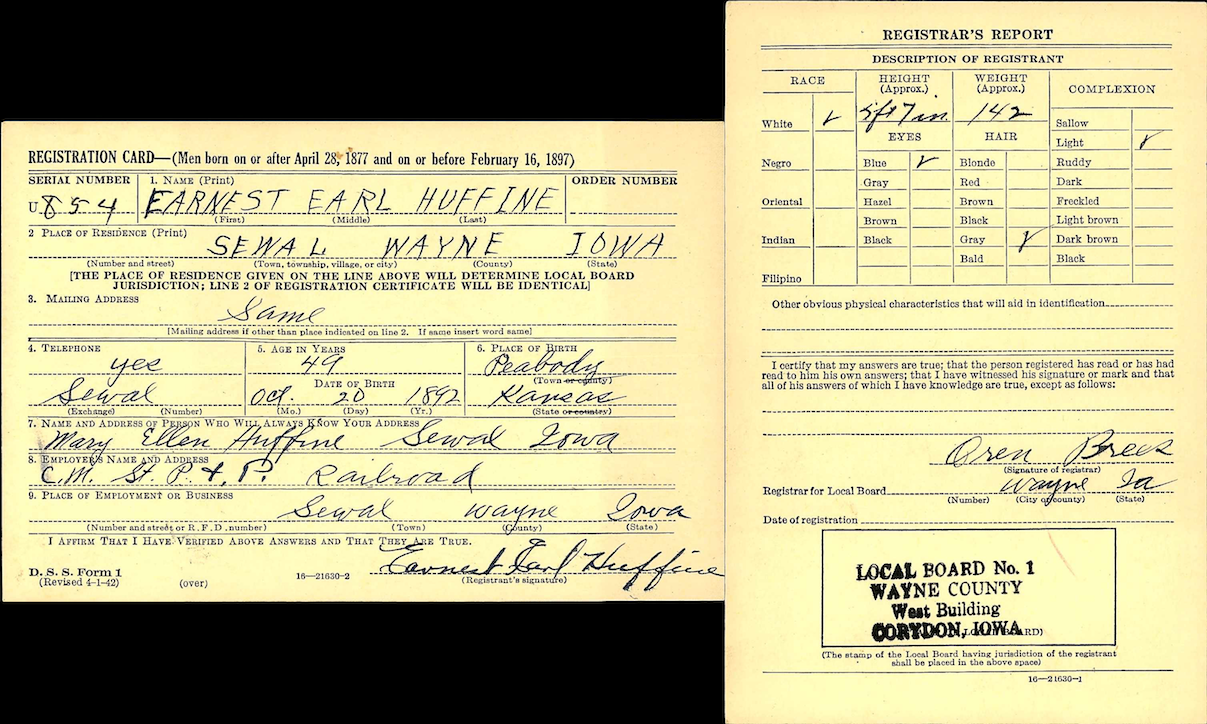 REGISTRATION CARD—(Men born on or after April 28, 1877 and on or before February 16, 1897)
SERIAL NUMBER 1. NAME (Print) ORDER NUMBER
U 854 EARNEST EARL HUFFINE
(First) (Middle) (Last)
2 PLACE OF RESIDENCE (Print)
SEWAL WAYNE IOWA
(Number and street) (Town, township, village, or city) (County) (State)
[THE PLACE OF RESIDENCE GIVEN ON THE LINE ABOVE WILL DETERMINE LOCAL BOARD
JURISDICTION; LINE 2 OF REGISTRATION CERTIFICATE WILL BE IDENTICAL]
3. MAILING ADDRESS
Same
[Mailing address if other than place indicated on line 2. If same insert word same]
4. TELEPHONE 5. AGE IN YEARS 6. PLACE OF BIRTH
yes 49 Peabody
DATE OF BIRTH (Town or county)
Sewal Oct. 20 1892 Kansas
(Exchange) (Number) (Mo.) (Day) (Yr.) (State or country)
7. NAME AND ADDRESS OF PERSON WHO WILL ALWAYS KNOW YOUR ADDRESS
Mary Ellen Huffine Sewal Iowa
8. EMPLOYER'S NAME AND ADDRESS
C.M. St. P. & P. Railroad
9. PLACE OF EMPLOYMENT OR BUSINESS
Sewal Wayne Iowa
(Number and street or R. F. D. number) (Town) (County) (State)
I AFFIRM THAT I HAVE VERIFIED ABOVE ANSWERS AND THAT THEY ARE TRUE.
Earnest Earl Huffine
D. S. S. Form 1
(Revised 4-1-42) (over) 16—21630-2 (Registrant's signature)
REGISTRAR'S REPORT
DESCRIPTION OF REGISTRANT
RACE HEIGHT (Approx.) WEIGHT (Approx.) COMPLEXION
White ✓ 5 ft 7 in. 142 Sallow
EYES HAIR Light ✓
Negro Blue ✓ Blonde Ruddy
Gray Red Dark
Oriental Hazel Brown Freckled
Brown Black Light brown
Indian Black Gray ✓ Dark brown
Bald Black
Filipino
Other obvious physical characteristics that will aid in identification
I certify that my answers are true; that the person registered has read or has had
read to him his own answers; that I have witnessed his signature or mark and that
all of his answers of which I have knowledge are true, except as follows:
Oren Brees
(Signature of registrar)
Registrar for Local Board Wayne Ia
(Number) (City or county) (State)
Date of registration
LOCAL BOARD No. 1
WAYNE COUNTY
West Building
CORYDON, IOWA
(The stamp of the Local Board having jurisdiction of the registrant
shall be placed in the above space)
16—21630-1